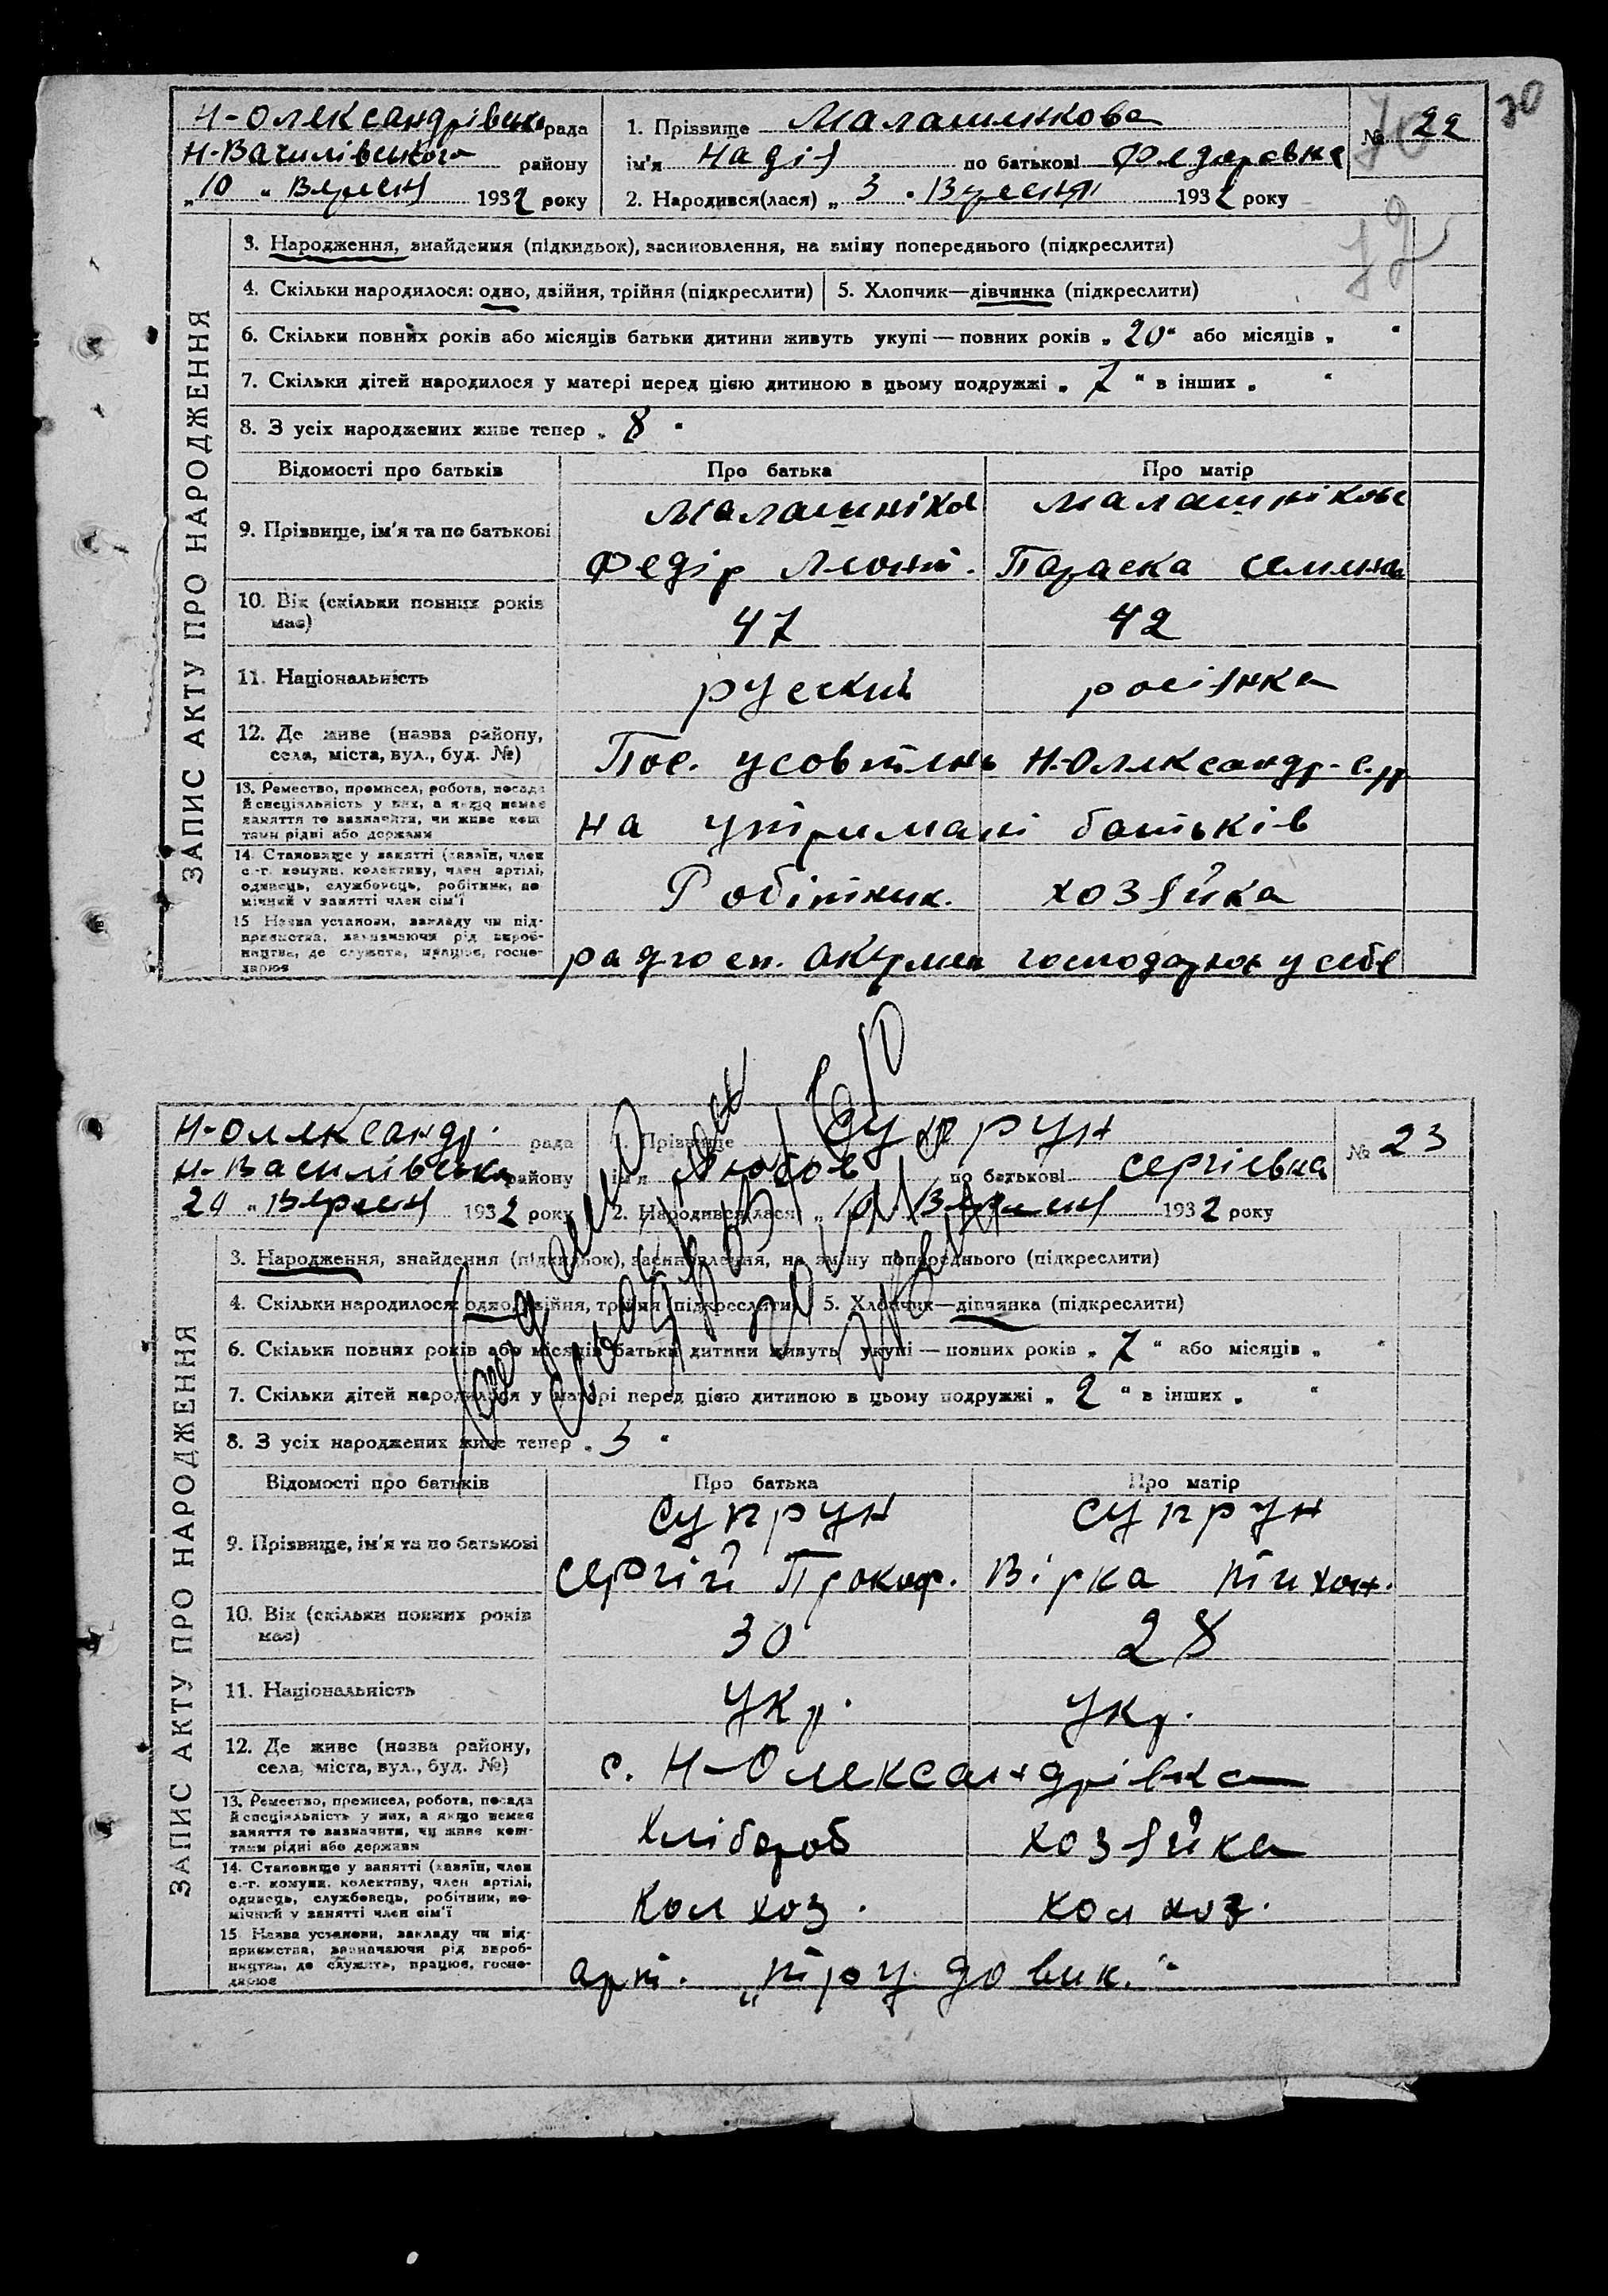 30
Н-Олександрівська рада
Н-Василівського району
„10 „ Вересня 1932 року
1. Прізвище Малашнікова
ім'я Надія по батькові Федоровна
2. Народився(лася) „ 3 „ Вересня 1932 року
№ 22
ЗАПИС АКТУ ПРО НАРОДЖЕННЯ
3. Народження, знайдення (підкидьок), засиновлення, на зміну попереднього (підкреслити)
4. Скільки народилося: одно, двійня, трійня (підкреслити) 5. Хлопчик—дівчинка (підкреслити)
6. Скільки повних років або місяців батьки дитини живуть укупі — повних років „ 20 “ або місяців „ “
7. Скільки дітей народилося у матері перед цією дитиною в цьому подружжі „ 7 “ в інших „ “
8. З усіх народжених живе тепер „ 8 “
Відомості про батьків Про батька Про матір
9. Прізвище, ім'я та по батькові
Малашніков Малашнікова
Федір Леонт. Параска Семенов
10. Вік (скільки повних років
має)
47 42
11. Національність руский росіянка
12. Де живе (назва району,
села, міста, вул., буд. №)
Пос. Н-Олександр. с.р
13. Ремество, промисел, робота, посада
й спеціяльність у них, а якщо немає
заняття то визначити, чи живе кош
тами рідні або держави
на утримані батьків
14. Становище у занятті (хазяїн, член
с.-г. комуни, колективу, член артілі,
одинець, службовець, робітник, по
мічний у занятті член сім'ї
Робітник. хозяйка
15 Назва установи, закладу чи під-
приємства, зазначаючи рід вироб-
ництва, де служить, працює, госпо-
дарює
радгосп. господарює у себе
Н-Олександр. рада
Н-Василівська району
„20 „ Вересня 1932 року
1. Прізвище Супрун
ім'я Любов по батькові Сергієвна
2. Народився(лася) „ 10 „ Вересня 1932 року
№ 23
ЗАПИС АКТУ ПРО НАРОДЖЕННЯ
3. Народження, знайдення (підкидьок), засиновлення, на зміну попереднього (підкреслити)
4. Скільки народилося: одно, двійня, трійня (підкреслити) 5. Хлопчик—дівчинка (підкреслити)
6. Скільки повних років або місяців батьки дитини живуть укупі — повних років „ 7 “ або місяців „ “
7. Скільки дітей народилося у матері перед цією дитиною в цьому подружжі „ 2 “ в інших „ “
8. З усіх народжених живе тепер „ 3 “
Відомості про батьків Про батька Про матір
9. Прізвище, ім'я та по батькові
Супрун Супрун
Сергій Прокоф. Вірка Тихон.
10. Вік (скільки повних років
має)
30 28
11. Національність Укр. Укр.
12. Де живе (назва району,
села, міста, вул., буд. №)
с. Н-Олександрівка
13. Ремество, промисел, робота, посада
й спеціяльність у них, а якщо немає
заняття то визначити, чи живе кош-
тами рідні або держави
Хлібороб хозяйка
14. Становище у занятті (хазяїн, член
с.-г. комуни, колективу, член артілі,
одинець, службовець, робітник, по-
мічний у занятті член сім'ї
Колхоз. колхоз.
15. Назва установи, закладу чи під-
приємства, зазначаючи рід вироб-
ництва, де служить, працює, госпо-
дарює
арт. „Трудовик.“